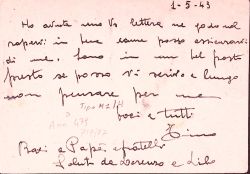 1-5-43
Ho avuto una Vs lettera ne godo nel
sapervi in bene come posso assicurarvi
di me, sono in un bel posto
presto se posso vi scrivo e lungo
non pensare per me
baci a tutti
Tipo M2/H
Baci a Papà e fratelli
Saluti da Lorenzo e Lilo